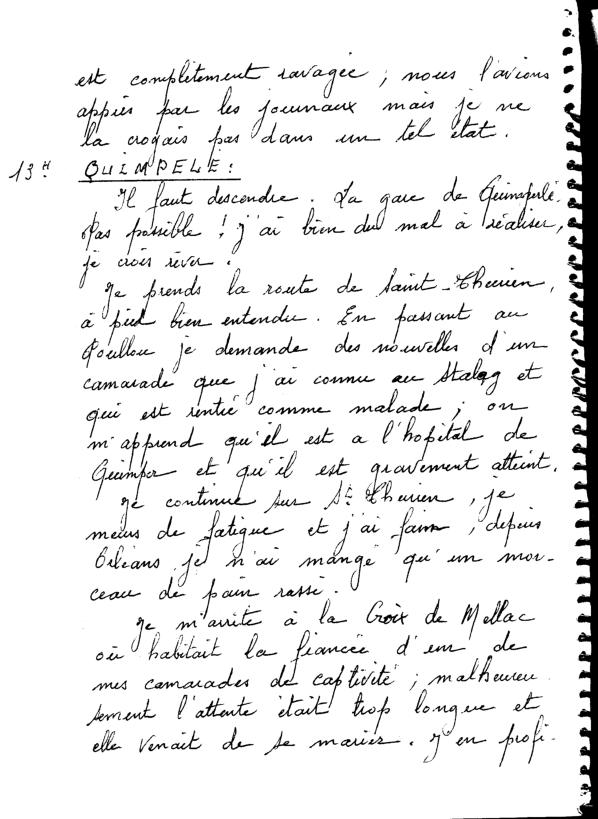 est complètement ravagée ; nous l'avions
appris par les journaux mais je ne
la croyais pas dans un tel état.
13H QUIMPELE :
Il faut descendre. La gare de Quimperlé.
Pas possible ! j'ai bien du mal à réaliser,
je crois rêver.
Je prends la route de Saint-Thurien,
à pied bien entendu. En passant au
Poullou je demande des nouvelles d'un
camarade que j'ai connu au Stalag et
qui est rentré comme malade ; on
m'apprend qu'il est a l'hopital de
Quimper et qu'il est gravement atteint.
Je continue sur St Thurien, je
meurs de fatigue et j'ai faim, depuis
Orléans je n'ai mangé qu'un mor-
ceau de pain rassi.
Je m'arrite à la Croix de Mellac
où habitait la fiancée d'un de
mes camarades de captivité ; malheureu
sement l'attente était trop longue et
elle venait de se marier. J'en profi-